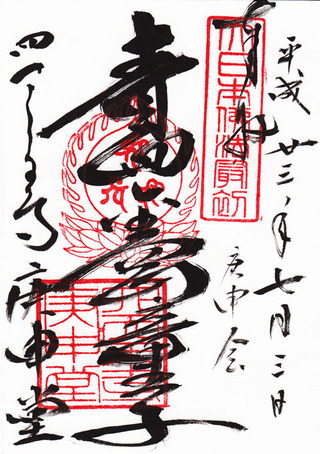 平成廿三年七月三日
庚申会
奉拝
大日本佛法最初
青面金剛童子
庚申堂
四天王寺庚申堂